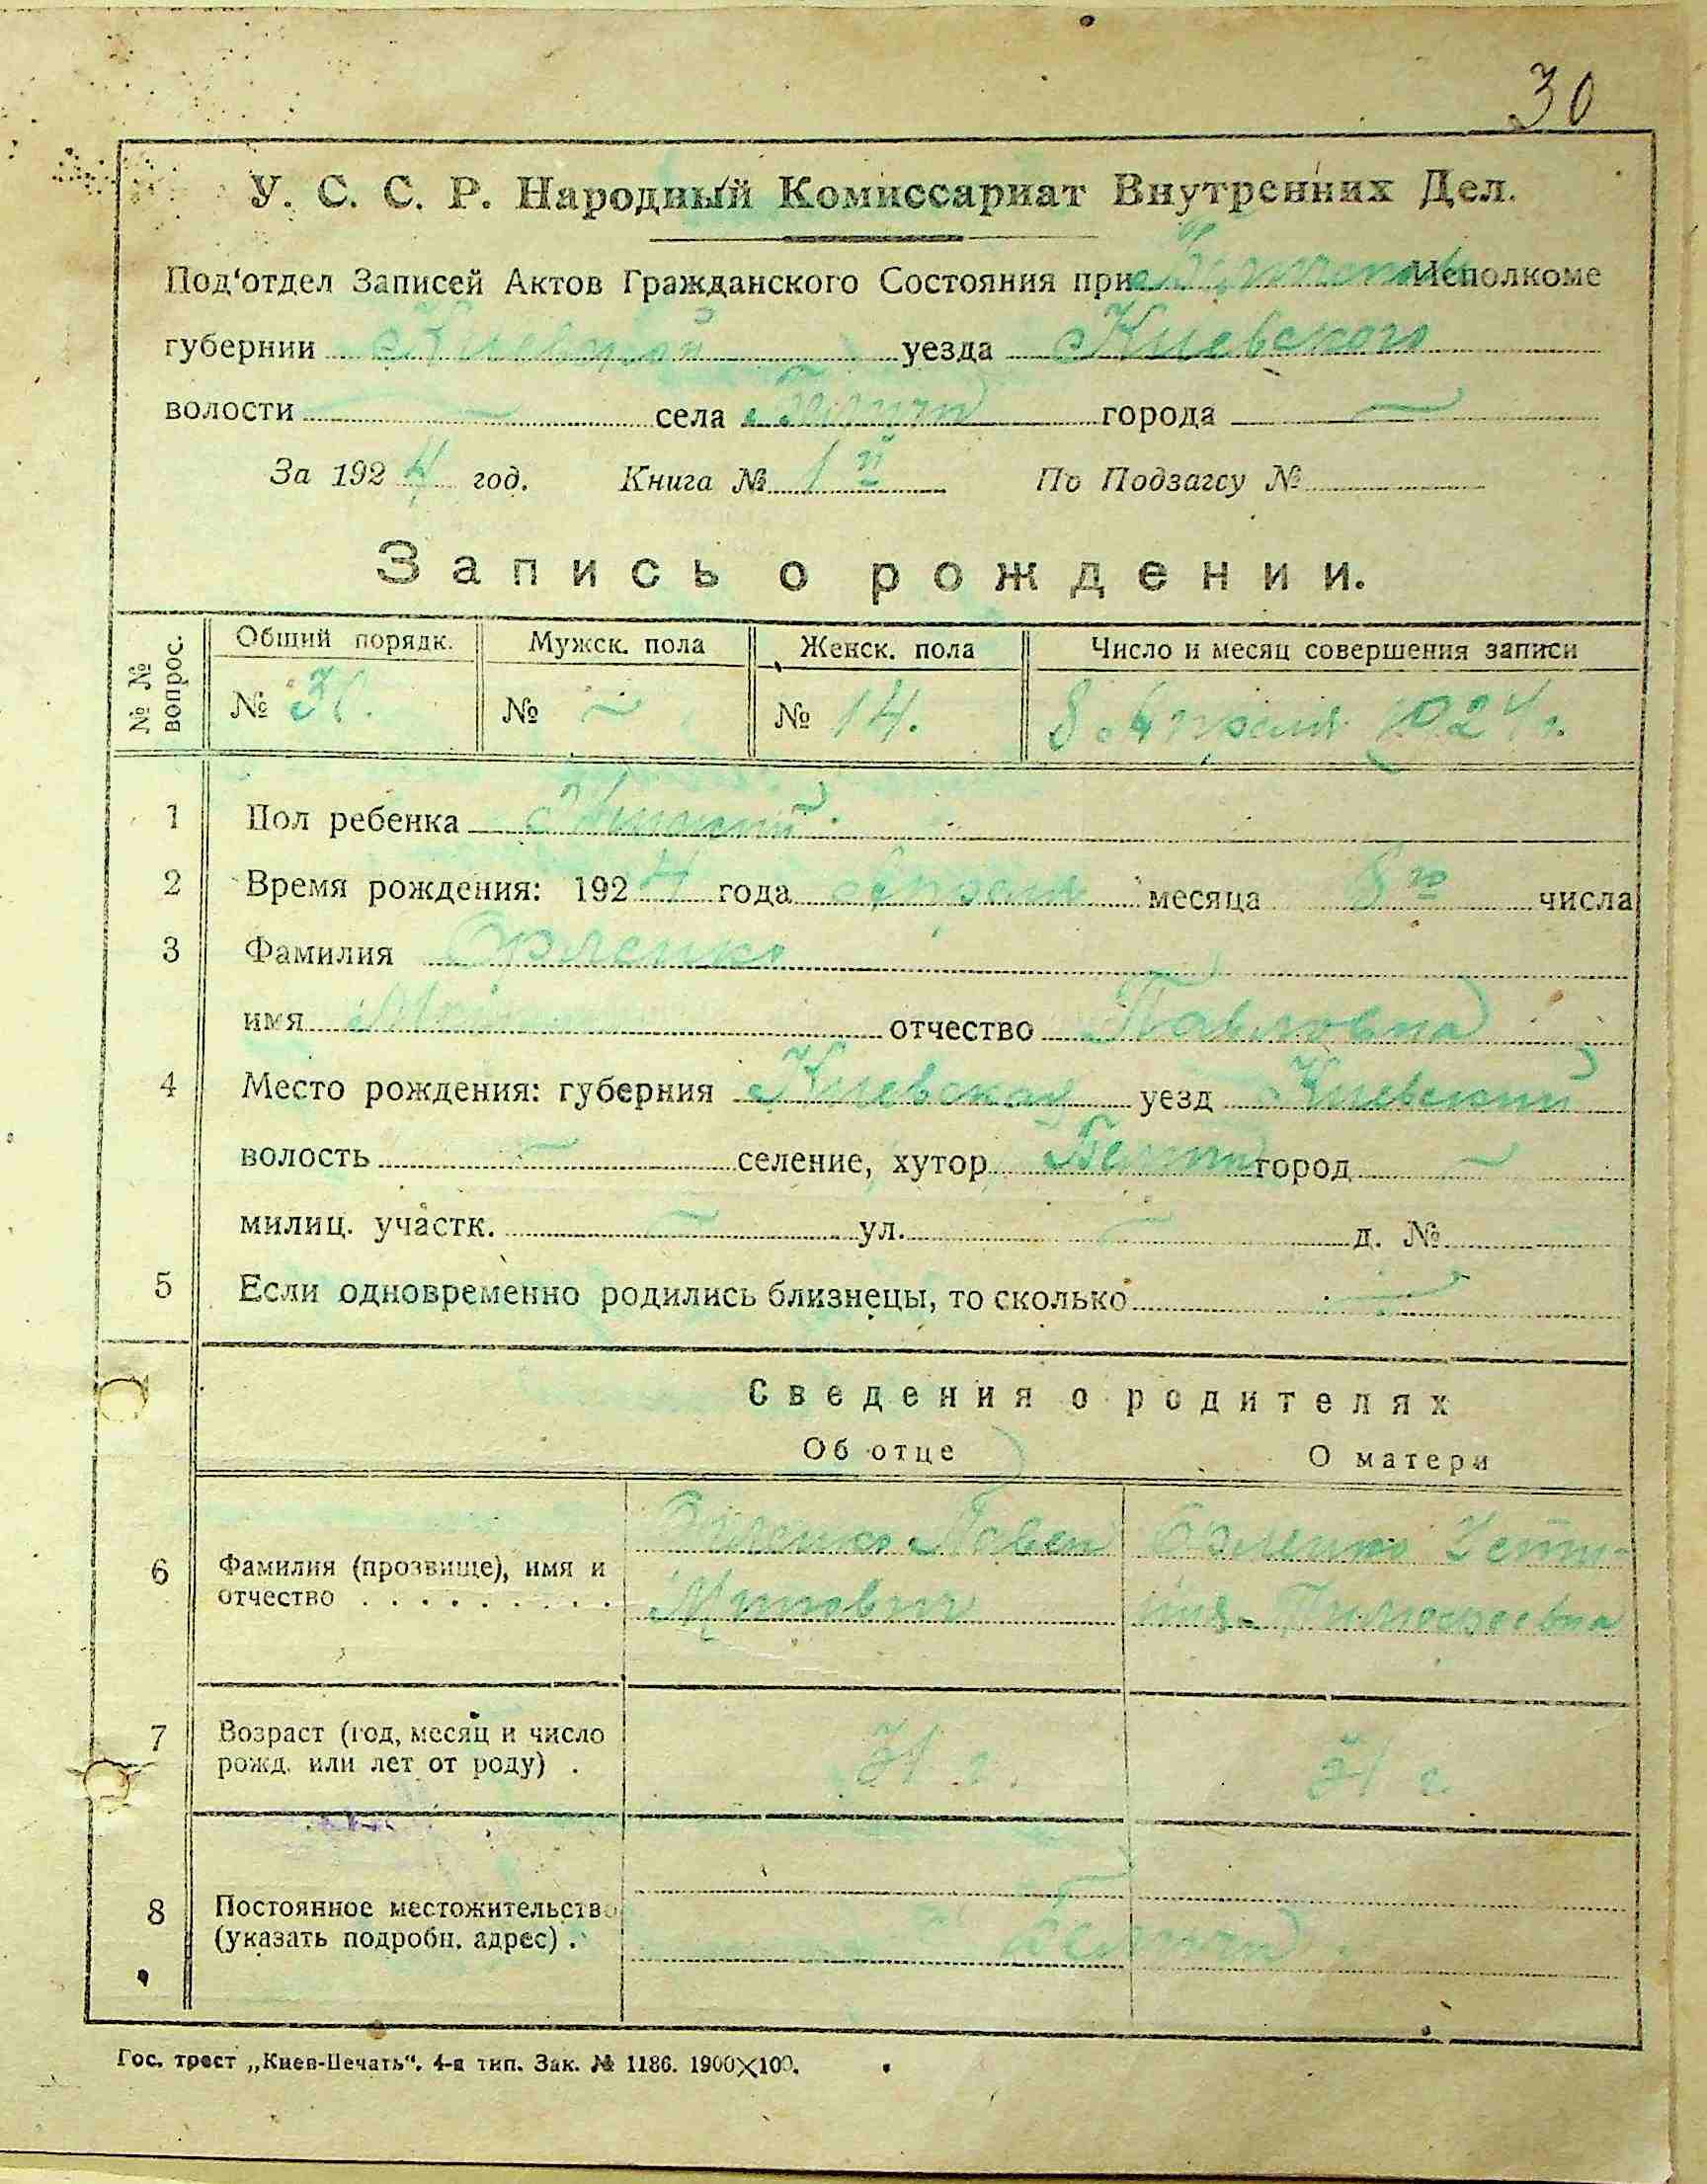 30
У. С. С. Р. Народный Комиссариат Внутренних Дел.
Под'отдел Записей Актов Гражданского Состояния при Исполкоме
губернии Киевской уезда Киевского
волости — села города —
За 1924 год. Книга № 1й По Подзагсу №
Запись о рождении.
№ № вопрос. Общий порядк. Мужск. пола Женск. пола Число и месяц совершения записи
№ 30. № — № 14. 8 Апреля 1924 г.
1 Пол ребенка Женский
2 Время рождения: 1924 года Апреля месяца 8го числа
3 Фамилия Орленко
имя отчество Павловна
4 Место рождения: губерния Киевская уезд Киевский
волость — селение, хутор город —
милиц. участк. — ул. — д. №
5 Если одновременно родились близнецы, то сколько —
Сведения о родителях
Об отце О матери
6 Фамилия (прозвище), имя и Орленко Павел Орленко Усти-
отчество . . . . . . . . . ния Тимофеевна
7 Возраст (год, месяц и число
рожд. или лет от роду) . 31 г. 31 г.
8 Постоянное местожительство
(указать подробн. адрес) .
Гос. трест „Киев-Печать“. 4-я тип. Зак. № 1186. 1900×100.